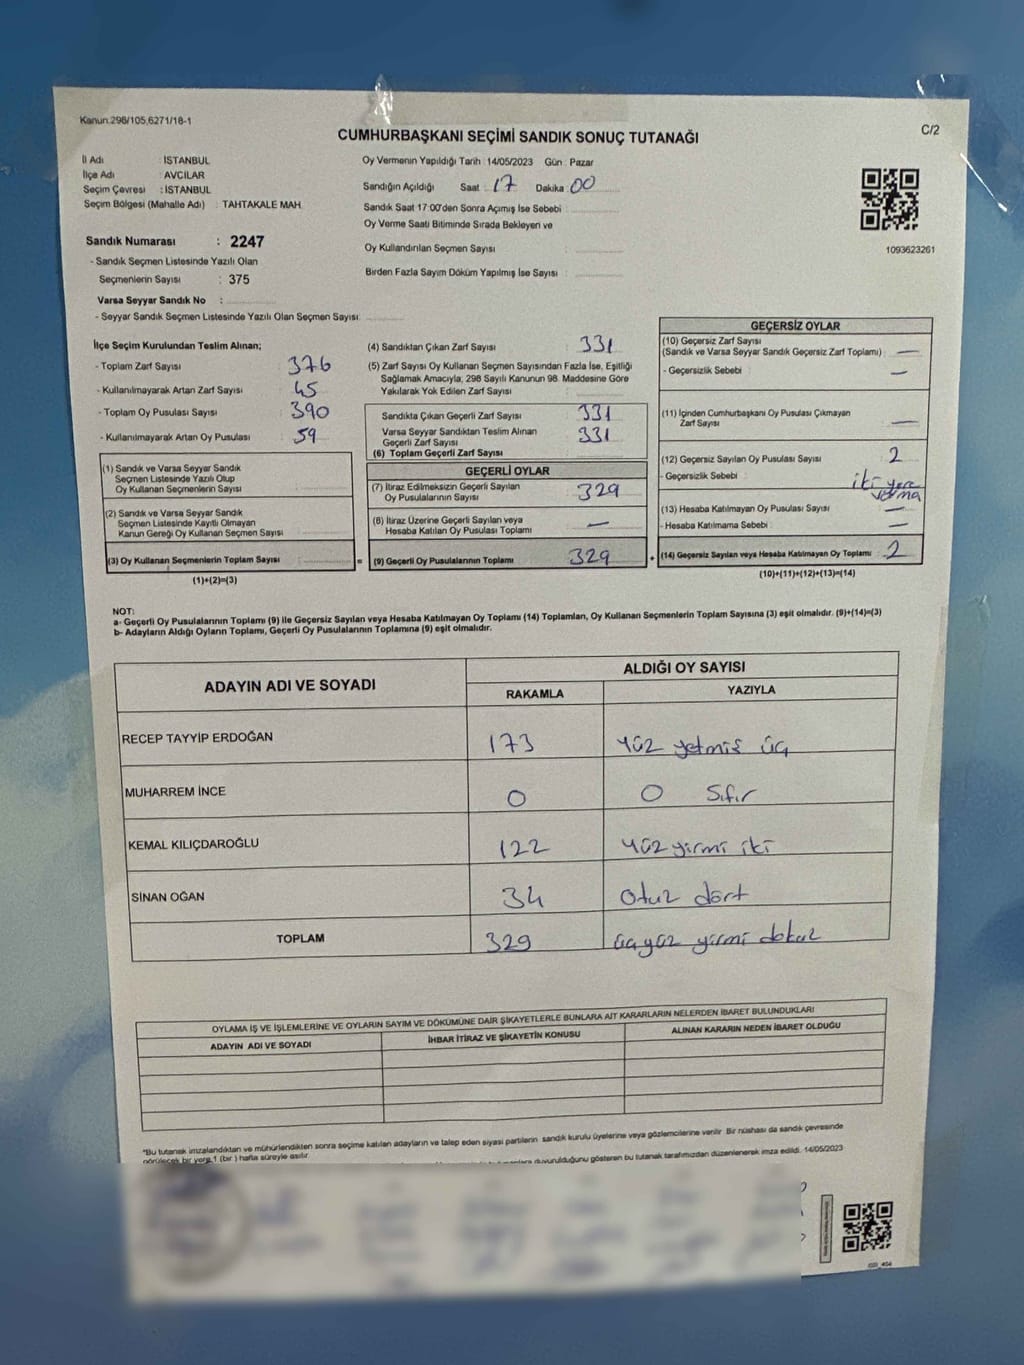 Kanun.298/105,6271/18-1
C/2
CUMHURBAŞKANI SEÇİMİ SANDIK SONUÇ TUTANAĞI
İl Adı : İSTANBUL
İlçe Adı : AVCILAR
Seçim Çevresi : İSTANBUL
Seçim Bölgesi (Mahalle Adı) : TAHTAKALE MAH.
Oy Vermenin Yapıldığı Tarih : 14/05/2023 Gün : Pazar
Sandığın Açıldığı Saat : 17 Dakika : 00
Sandık Saat 17:00'den Sonra Açımış İse Sebebi :
Oy Verme Saati Bitiminde Sırada Bekleyen ve
Oy Kullandırılan Seçmen Sayısı :
Birden Fazla Sayım Döküm Yapılmış İse Sayısı :
1093623261
Sandık Numarası : 2247
- Sandık Seçmen Listesinde Yazılı Olan
Seçmenlerin Sayısı : 375
Varsa Seyyar Sandık No :
- Seyyar Sandık Seçmen Listesinde Yazılı Olan Seçmen Sayısı:
İlçe Seçim Kurulundan Teslim Alınan;
- Toplam Zarf Sayısı : 376
- Kullanılmayarak Artan Zarf Sayısı : 45
- Toplam Oy Pusulası Sayısı : 390
- Kullanılmayarak Artan Oy Pusulası : 59
(1) Sandık ve Varsa Seyyar Sandık
Seçmen Listesinde Yazılı Olup
Oy Kullanan Seçmenlerin Sayısı :
(2) Sandık ve Varsa Seyyar Sandık
Seçmen Listesinde Kayıtlı Olmayan
Kanun Gereği Oy Kullanan Seçmen Sayısı :
(3) Oy Kullanan Seçmenlerin Toplam Sayısı :
(1)+(2)=(3)
(4) Sandıktan Çıkan Zarf Sayısı : 331
(5) Zarf Sayısı Oy Kullanan Seçmen Sayısından Fazla İse, Eşitliği
Sağlamak Amacıyla, 298 Sayılı Kanunun 98. Maddesine Göre
Yakılarak Yok Edilen Zarf Sayısı :
Sandıkta Çıkan Geçerli Zarf Sayısı : 331
Varsa Seyyar Sandıktan Teslim Alınan
Geçerli Zarf Sayısı : 331
(6) Toplam Geçerli Zarf Sayısı :
GEÇERLİ OYLAR
(7) İtiraz Edilmeksizin Geçerli Sayılan
Oy Pusulalarının Sayısı : 329
(8) İtiraz Üzerine Geçerli Sayılan veya
Hesaba Katılan Oy Pusulası Toplamı : —
(9) Geçerli Oy Pusulalarının Toplamı : 329
GEÇERSİZ OYLAR
(10) Geçersiz Zarf Sayısı
(Sandık ve Varsa Seyyar Sandık Geçersiz Zarf Toplamı) : —
- Geçersizlik Sebebi : —
(11) İçinden Cumhurbaşkanı Oy Pusulası Çıkmayan
Zarf Sayısı : —
(12) Geçersiz Sayılan Oy Pusulası Sayısı : 2
- Geçersizlik Sebebi : iki yere
verma
(13) Hesaba Katılmayan Oy Pusulası Sayısı : —
- Hesaba Katılmama Sebebi : —
(14) Geçersiz Sayılan veya Hesaba Katılmayan Oy Toplamı : 2
(10)+(11)+(12)+(13)=(14)
NOT:
a- Geçerli Oy Pusulalarının Toplamı (9) ile Geçersiz Sayılan veya Hesaba Katılmayan Oy Toplamı (14) Toplamları, Oy Kullanan Seçmenlerin Toplam Sayısına (3) eşit olmalıdır. (9)+(14)=(3)
b- Adayların Aldığı Oyların Toplamı, Geçerli Oy Pusulalarının Toplamına (9) eşit olmalıdır.
ADAYIN ADI VE SOYADI
ALDIĞI OY SAYISI
RAKAMLA YAZIYLA
RECEP TAYYİP ERDOĞAN 173 Yüz yetmiş üç
MUHARREM İNCE 0 0 Sıfır
KEMAL KILIÇDAROĞLU 122 Yüz yirmi iki
SİNAN OĞAN 34 Otuz dört
TOPLAM 329 üçyüz yirmi dokuz
OYLAMA İŞ VE İŞLEMLERİNE VE OYLARIN SAYIM VE DÖKÜMÜNE DAİR ŞİKAYETLERLE BUNLARA AİT KARARLARIN NELERDEN İBARET BULUNDUKLARI
ADAYIN ADI VE SOYADI İHBAR İTİRAZ VE ŞİKAYETİN KONUSU ALINAN KARARIN NEDEN İBARET OLDUĞU
*Bu tutanak imzalandıktan ve mühürlendikten sonra seçime katılan adayların ve talep eden siyasi partilerin sandık kurulu üyelerine veya gözlemcilerine verilir. Bir nüshası da sandık çevresinde
görülecek bir yere 1 (bir) hafta süreyle asılır. duyurulduğunu gösteren bu tutanak tarafımızdan düzenlenerek imza edildi. 14/05/2023